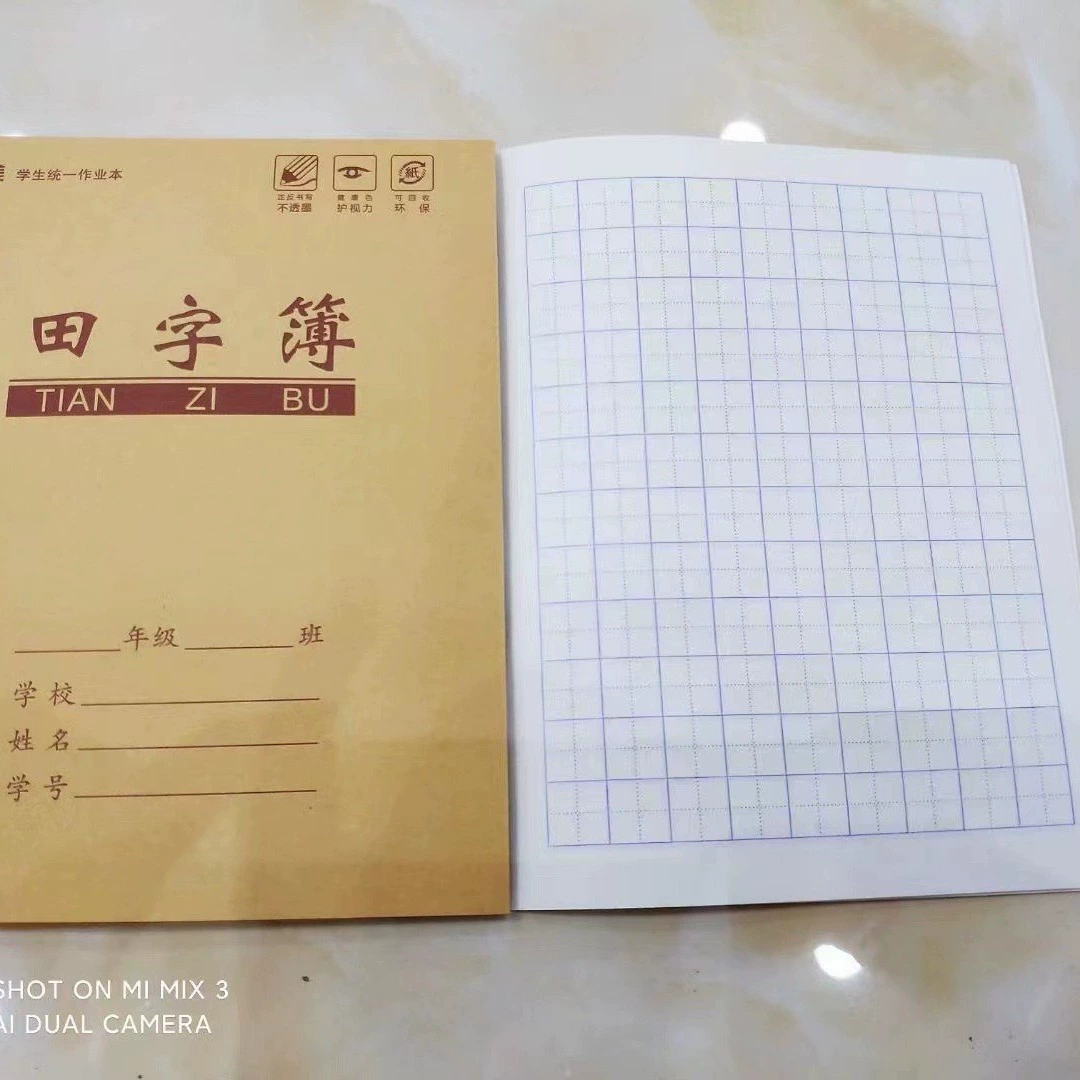 学生统一作业本
正反书写 健康色 可回收
不透墨 护视力 环保
紙
田字簿
TIAN ZI BU
年级 班
学校
姓名
学号
SHOT ON MI MIX 3
AI DUAL CAMERA